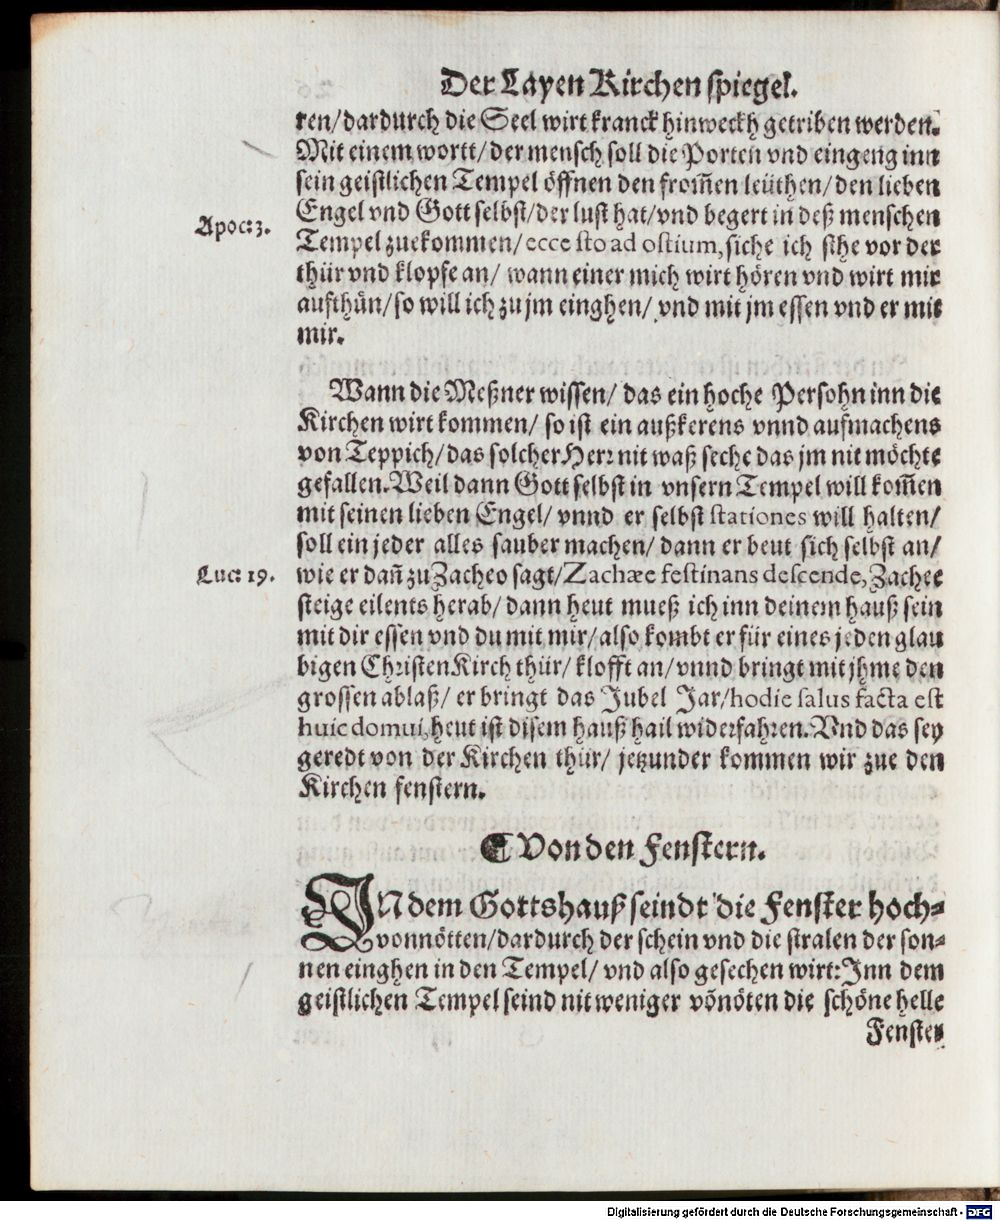 Der Layen Kirchen spiegel.
ren/dardurch die Seel wirt kranck hinweckh getriben werden.
Mit einem wortt/der mensch soll die Porten vnd eingeng inn
sein geistlichen Tempel öffnen den from̃en leüthen/den lieben
Engel vnd Gott selbst/der lust hat/vnd begert in deß menschen
Apoc: 3.
Tempel zuekommen/ecce sto ad ostium, siche ich sthe vor der
thür vnd klopfe an/ wann einer mich wirt hören vnd wirt mir
aufthün/so will ich zu jm einghen/ vnd mit jm essen vnd er mit
mir.
Wann die Meßner wissen/ das ein hoche Persohn inn die
Kirchen wirt kommen/ so ist ein außkerens vnnd aufmachens
von Teppich/das solcher Herr nit waß seche das jm nit möchte
gefallen. Weil dann Gott selbst in vnsern Tempel will kom̃en
mit seinen lieben Engel/ vnnd er selbst stationes will halten/
soll ein jeder alles sauber machen/ dann er beut sich selbst an/
Luc: 19.
wie er dañ zu Zacheo sagt/Zachæe festinans descende, Zachee
steige eilents herab/ dann heut mueß ich inn deinem hauß sein
mit dir essen vnd du mit mir/also kombt er für eines jeden glau
bigen Christen Kirch thür/ klofft an/vnnd bringt mit jhme den
grossen ablaß/ er bringt das Jubel Jar/hodie salus facta est
huic domui, heut ist disem hauß hail widerfahren. Vnd das sey
geredt von der Kirchen thür/ jetzunder kommen wir zue den
Kirchen fenstern.
¶ Von den Fenstern.
IN dem Gottshauß seindt die Fenster hoch-
vonnötten/dardurch der schein vnd die stralen der son-
nen einghen in den Tempel/ vnd also gesechen wirt: Inn dem
geistlichen Tempel seind nit weniger võnöten die schöne helle
Fenster
Digitalisierung gefördert durch die Deutsche Forschungsgemeinschaft - DFG